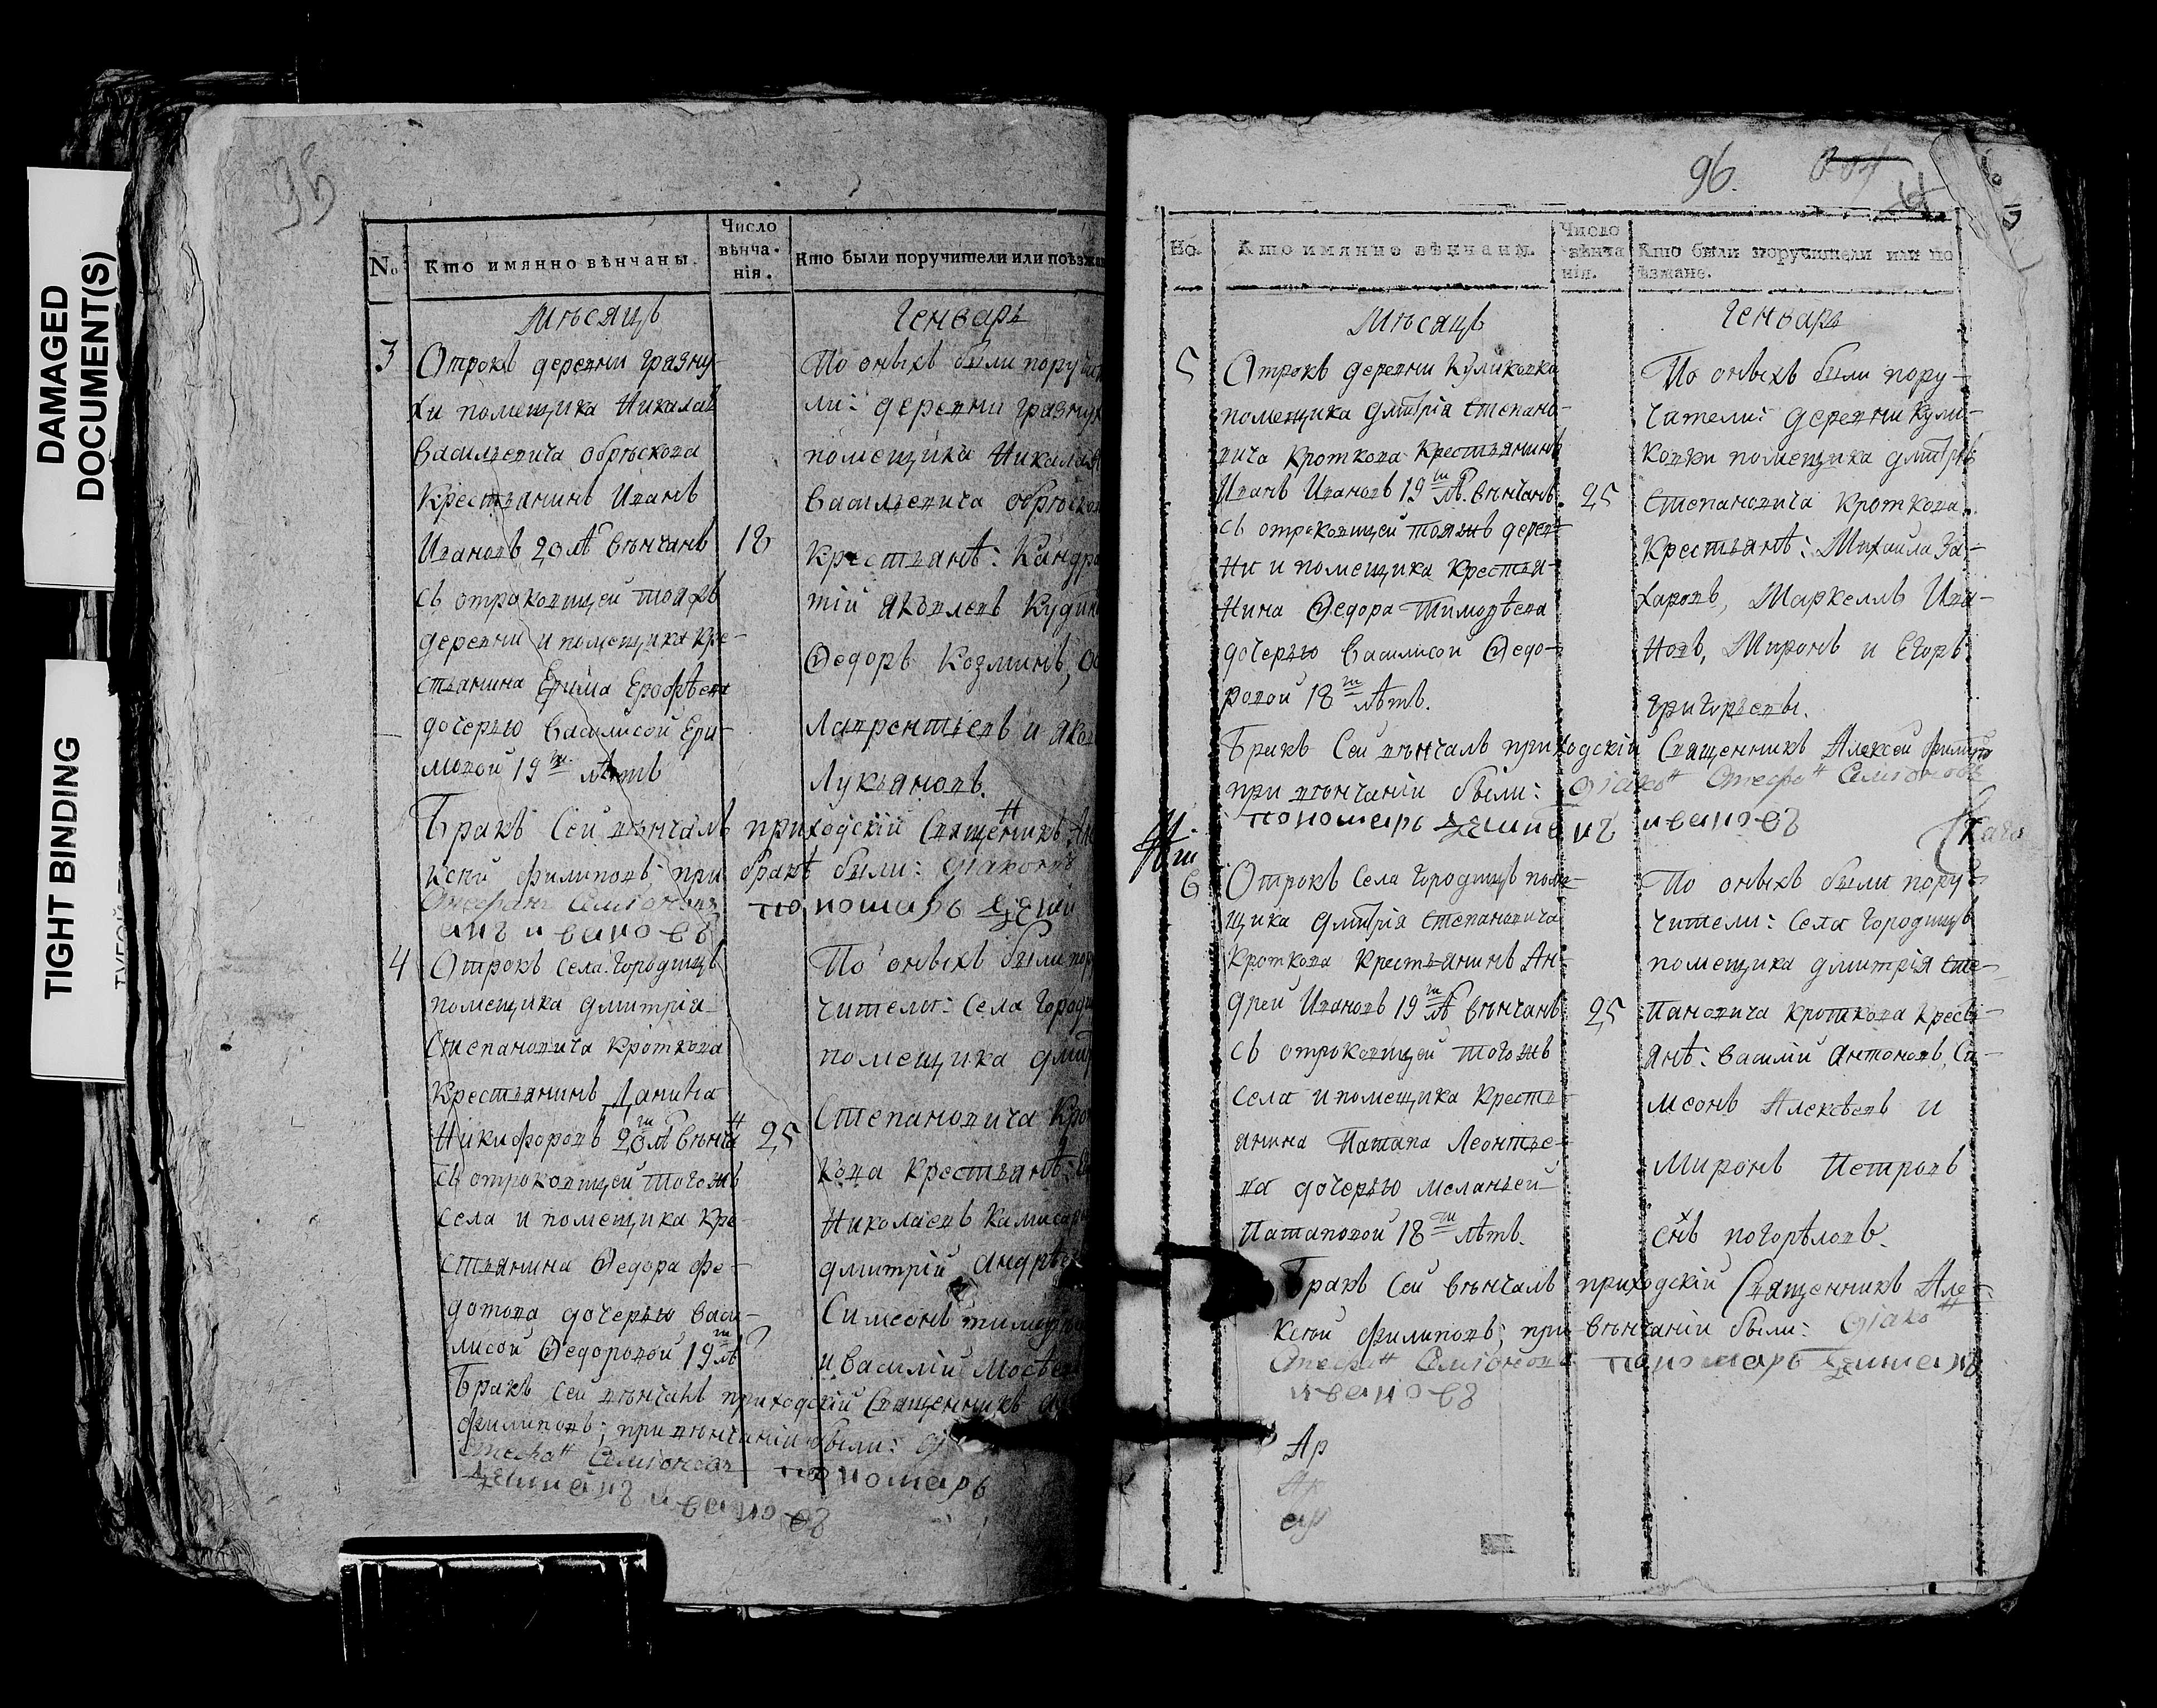 DAMAGED
DOCUMENT(S)
TIGHT BINDING
95
No.
Кто имянно вѣнчаны.
Число
вѣнча-
нія.
Кто были поручители или поѣзжан
Мѣсяцъ
Генварь
3
Отрокъ деревни Грязну-
хи помещика Никалая
Васильевича Обрѣскова
Крестьянинъ Иванъ
Ивановъ 20 лѣ вѣнчанъ
18
съ отроковицей тояжъ
деревни и помещика Кре-
стьянина Ерима Ерофѣева
дочерью Василисой Ери-
мовой 19 ти лѣтъ
По оныхъ были поручи
ли: деревни Грязнух
помещика Никалая
Васильевича Обрѣско
Крестьянѣ: Кандра
тій Яковлевъ Куди
Ѳедоръ Козминъ,
Лаврентьевъ и
Лукьяновъ.
Бракъ Сей вѣнчалъ приходскій Священникъ
ксѣй Филиповъ; при бракѣ были: Діаконъ
Стефанъ Семіоновъ пономарь
ивановъ
4
Отрокъ Села Городищъ
помещика Дмитрія
Степановича Кроткова
Крестьянинъ Данила
Никифоровъ 20 ти лѣ вѣнча
25
съ отроковицей тогожъ
села и помещика Кре-
стьянина Ѳедора Фе-
дотова дочерью Васи-
лисой Ѳедоровой 19 ти лѣ
По оныхъ были пору
чители: Села Городи
помещика Дмит
Степановича Кро
кова Крестьянѣ:
Николаевъ Камисар
Дмитрій Андрѣе
Симеонъ
и Василій Мосѣев
Бракъ сей вѣнчалъ приходскій Священникъ
Филиповъ; при вѣнчаніи были:
Стефанъ Семіоновъ пономарь
ивановъ
96.
Но.
Кто имянно вѣнчаны.
Число
вѣнча
нія.
Кто были поручители или по
ѣзжане.
Мѣсяцъ
Генварь
5
Отрокъ деревни Куликовка
помещика Дмитрія Степано-
вича Кроткова Крестьянинъ
Иванъ Ивановъ 19 ти лѣ. вѣнчанъ
25
съ отроковицей тояжъ дерев-
ни и помещика Крестья-
нина Ѳедора Тимофѣева
дочерью Василисой Ѳедо-
ровой 18 ти лѣтъ.
По оныхъ были пору-
чители: деревни Кули-
ковки помещика Дмитрія
Степановича Кроткова
Крестьянѣ: Михаила За-
харовъ, Маркеллъ Ива-
новъ, Миронъ и Егоръ
Григорьевы.
Бракъ Сей вѣнчалъ приходскій Священникъ Алексей Филипо
при вѣнчаніи были: Діаконъ Стефанъ Семіоновъ
пономарь ивановъ
6
Отрокъ Села Городищъ поме-
щика Дмитрія Степановича
Кроткова Крестьянинъ Ан-
дрей Ивановъ 19 ти лѣ вѣнчанъ
25
съ отроковицей тогожъ
села и помещика Кресть-
янина Патапа Леонтье-
ва дочерью Меланьей
Патаповой 18 ти лѣтъ.
По оныхъ были пору-
чители: Села Городищъ
помещика Дмитрія Сте-
пановича Кроткова Кресть-
янѣ: Василій Антоновъ, Си-
меонъ Алексѣевъ и
Миронъ Петровъ
снъ Погорѣловъ.
Бракъ Сей вѣнчалъ приходскій Священникъ Але-
ксѣй Филиповъ; при вѣнчаніи были: Діаконъ
Стефанъ Семіоновъ пономарь
ивановъ
Ар
Ар
ар